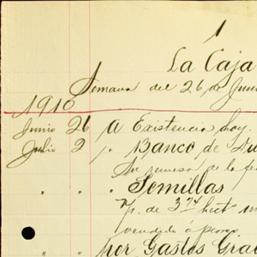 1
La Caja
Semana del 26 de Jun
1910
Junio 26 A Existencia hoy.
Julio 2 " Banco de Du
Su remesa de la fe
" " " Semillas
P. de 3 74 hect m
vendido á
" " " por Gastos Gra